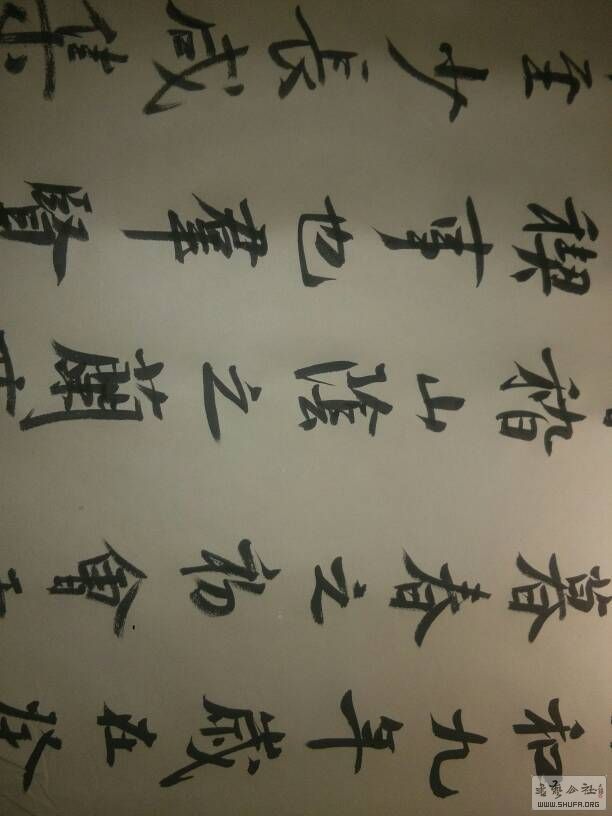 和九年歲在癸
暮春之初會于
稽山陰之蘭亭
禊事也羣賢
至少長咸集
书艺公社
WWW.SHUFA.ORG